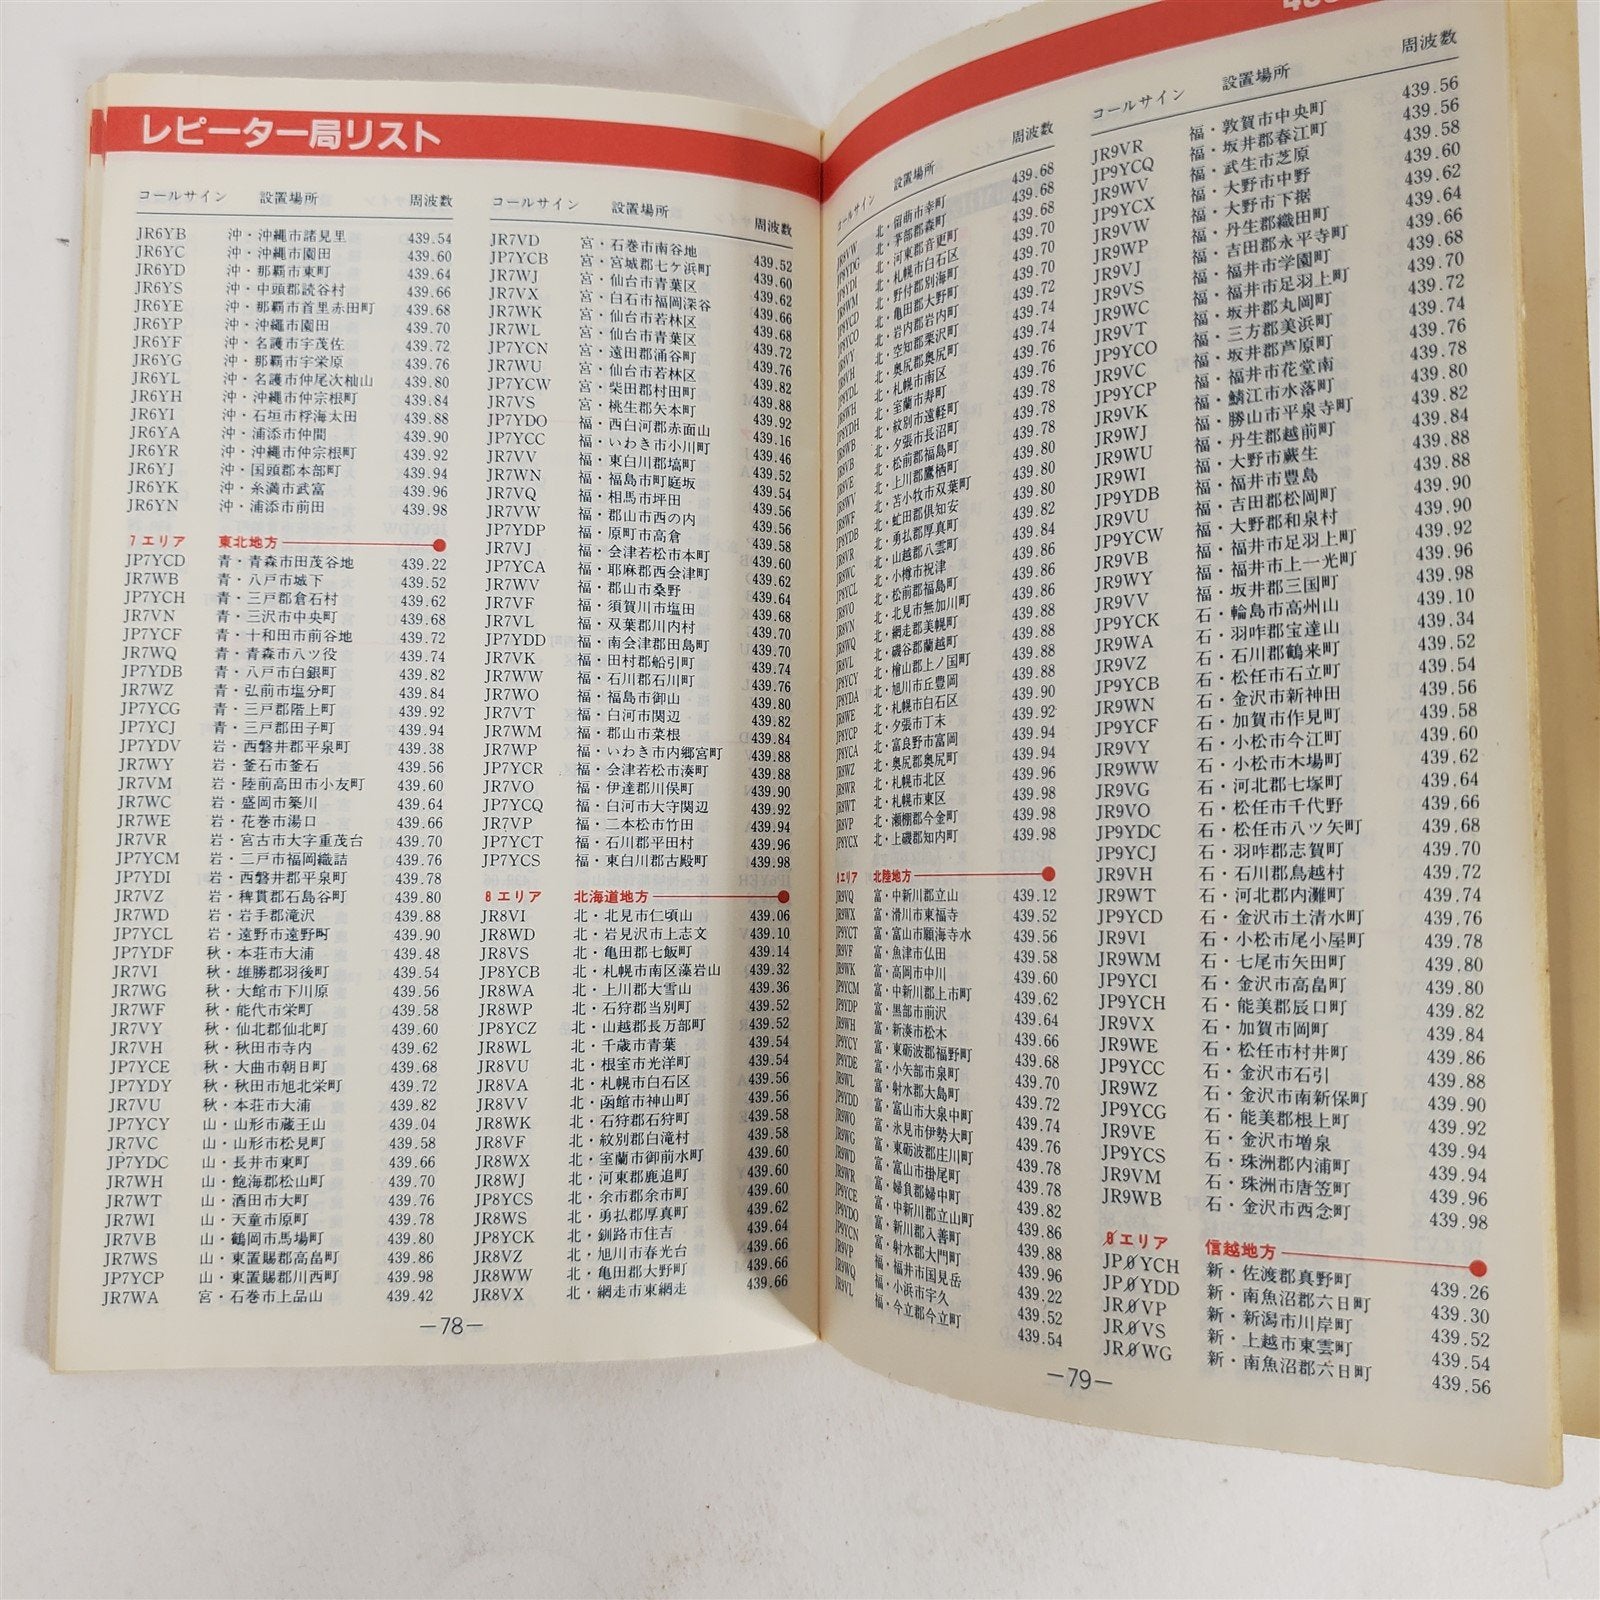 レピーター局リスト
コールサイン 設置場所 周波数
JR6YB 沖・沖縄市諸見里 439.54
JR6YC 沖・沖縄市園田 439.60
JR6YD 沖・那覇市東町 439.64
JR6YS 沖・中頭郡読谷村 439.66
JR6YE 沖・那覇市首里赤田町 439.68
JR6YP 沖・沖縄市園田 439.70
JR6YF 沖・名護市宇茂佐 439.72
JR6YG 沖・那覇市字栄原 439.76
JR6YL 沖・名護市仲尾次杣山 439.80
JR6YH 沖・沖縄市仲宗根町 439.84
JR6YI 沖・石垣市桴海太田 439.88
JR6YA 沖・浦添市仲間 439.90
JR6YR 沖・沖縄市仲宗根町 439.92
JR6YJ 沖・国頭郡本部町 439.94
JR6YK 沖・糸満市武富 439.96
JR6YN 沖・浦添市前田 439.98
7エリア 東北地方
JP7YCD 青・青森市田茂谷地 439.22
JR7WB 青・八戸市城下 439.52
JP7YCH 青・三戸郡倉石村 439.62
JR7VN 青・三沢市中央町 439.68
JP7YCF 青・十和田市前谷地 439.72
JR7WQ 青・青森市八ツ役 439.74
JP7YDB 青・八戸市白銀町 439.82
JR7WZ 青・弘前市塩分町 439.84
JP7YCG 青・三戸郡階上町 439.92
JP7YCJ 青・三戸郡田子町 439.94
JP7YDV 岩・西磐井郡平泉町 439.38
JR7WY 岩・釜石市釜石 439.56
JR7VM 岩・陸前高田市小友町 439.60
JR7WC 岩・盛岡市築川 439.64
JR7WE 岩・花巻市湯口 439.66
JR7VR 岩・宮古市大字重茂台 439.70
JP7YCM 岩・二戸市福岡織詰 439.76
JP7YDI 岩・西磐井郡平泉町 439.78
JR7VZ 岩・稗貫郡石鳥谷町 439.80
JR7WD 岩・岩手郡滝沢 439.88
JP7YCL 岩・遠野市遠野町 439.90
JP7YDF 秋・本荘市大浦 439.48
JR7VI 秋・雄勝郡羽後町 439.54
JR7WG 秋・大館市下川原 439.56
JR7WF 秋・能代市栄町 439.58
JR7VY 秋・仙北郡仙北町 439.60
JR7VH 秋・秋田市寺内 439.62
JP7YCE 秋・大曲市朝日町 439.68
JP7YDY 秋・秋田市旭北栄町 439.72
JR7VU 秋・本荘市大浦 439.82
JP7YCY 山・山形市蔵王山 439.04
JR7VC 山・山形市松見町 439.58
JP7YDC 山・長井市東町 439.66
JR7WH 山・飽海郡松山町 439.70
JR7WT 山・酒田市大町 439.76
JR7WI 山・天童市原町 439.78
JR7VB 山・鶴岡市馬場町 439.80
JR7WS 山・東置賜郡高畠町 439.86
JP7YCP 山・東置賜郡川西町 439.98
JR7WA 宮・石巻市上品山 439.42
コールサイン 設置場所 周波数
JR7VD 宮・石巻市南谷地 439.52
JP7YCB 宮・宮城郡七ケ浜町 439.60
JR7WJ 宮・仙台市青葉区 439.62
JR7VX 宮・白石市福岡深谷 439.66
JR7WK 宮・仙台市若林区 439.68
JR7WL 宮・仙台市青葉区 439.72
JP7YCN 宮・遠田郡涌谷町 439.76
JR7WU 宮・仙台市若林区 439.82
JP7YCW 宮・柴田郡村田町 439.88
JR7VS 宮・桃生郡矢本町 439.92
JP7YDO 福・西白河郡赤面山 439.16
JP7YCC 福・いわき市小川町 439.46
JR7VV 福・東白川郡塙町 439.52
JR7WN 福・福島市町庭坂 439.54
JR7VQ 福・相馬市坪田 439.56
JR7VW 福・郡山市西の内 439.58
JP7YDP 福・原町市高倉 439.60
JR7VJ 福・会津若松市本町 439.62
JP7YCA 福・耶麻郡西会津町 439.64
JR7WV 福・郡山市桑野 439.68
JR7VF 福・須賀川市塩田 439.70
JR7VL 福・双葉郡川内村 439.70
JP7YDD 福・南会津郡田島町 439.74
JR7VK 福・田村郡船引町 439.76
JR7WW 福・石川郡石川町 439.80
JR7WO 福・福島市御山 439.82
JR7VT 福・白河市関辺 439.84
JR7WM 福・郡山市菜根 439.88
JR7WP 福・いわき市内郷宮町 439.88
JP7YCR 福・会津若松市湊町 439.90
JR7VO 福・伊達郡川俣町 439.92
JP7YCQ 福・白河市大守関辺 439.94
JR7VP 福・二本松市竹田 439.96
JP7YCT 福・石川郡平田村 439.98
JP7YCS 福・東白川郡古殿町
8エリア 北海道地方
JR8VI 北・北見市仁頃山 439.06
JR8WD 北・岩見沢市上志文 439.10
JR8VS 北・亀田郡七飯町 439.14
JP8YCB 北・札幌市南区藻岩山 439.32
JR8WA 北・上川郡大雪山 439.36
JR8WP 北・石狩郡当別町 439.52
JP8YCZ 北・山越郡長万部町 439.52
JR8WL 北・千歳市青葉 439.54
JR8VU 北・根室市光洋町 439.54
JR8VA 北・札幌市白石区 439.56
JR8VV 北・函館市神山町 439.56
JR8WK 北・石狩郡石狩町 439.58
JR8VF 北・紋別郡白滝村 439.58
JR8WX 北・室蘭市御前水町 439.60
JR8WJ 北・河東郡鹿追町 439.60
JP8YCS 北・余市郡余市町 439.60
JR8WS 北・勇払郡厚真町 439.62
JP8YCK 北・釧路市住吉 439.64
JR8VZ 北・旭川市春光台 439.66
JR8WW 北・亀田郡大野町 439.66
JR8VX 北・網走市東網走 439.66
—78—
コールサイン 設置場所 周波数
北・留萌市幸町 439.68
北・茅部郡森町 439.68
北・河東郡音更町 439.68
北・札幌市白石区 439.70
北・野付郡別海町 439.70
北・亀田郡大野町 439.70
北・岩内郡岩内町 439.72
北・空知郡栗沢町 439.74
北・奥尻郡奥尻町 439.74
北・札幌市南区 439.76
北・室蘭市寿町 439.76
北・紋別市遠軽町 439.78
北・夕張市長沼町 439.78
北・松前郡福島町 439.78
北・上川郡鷹栖町 439.80
北・苫小牧市双葉町 439.80
北・虻田郡倶知安 439.80
北・勇払郡厚真町 439.82
北・山越郡八雲町 439.84
北・小樽市祝津 439.86
北・松前郡福島町 439.86
北・北見市無加川町 439.86
北・網走郡美幌町 439.88
北・磯谷郡蘭越町 439.88
北・檜山郡上ノ国町 439.88
北・旭川市丘豊岡 439.88
北・札幌市白石区 439.90
北・夕張市丁末 439.92
北・富良野市富岡 439.94
北・奥尻郡奥尻町 439.94
北・札幌市北区 439.96
北・札幌市東区 439.98
北・瀬棚郡今金町 439.98
北・上磯郡知内町 439.98
9エリア 北陸地方
JR9VQ 富・中新川郡立山 439.12
JR9WX 富・滑川市東福寺 439.52
JP9YCT 富・富山市願海寺水 439.56
JR9VF 富・魚津市仏田 439.58
JR9WK 富・高岡市中川 439.60
JP9YCM 富・中新川郡上市町 439.62
JP9YDP 富・黒部市前沢 439.64
JR9WH 富・新湊市松木 439.66
JP9YCY 富・東砺波郡福野町 439.68
JP9YDE 富・小矢部市泉町 439.70
JR9WL 富・射水郡大島町 439.72
JP9YDD 富・富山市大泉中町 439.74
JR9WO 富・氷見市伊勢大町 439.76
JR9WG 富・東砺波郡庄川町 439.78
JR9WD 富・富山市掛尾町 439.78
JR9WR 富・婦負郡婦中町 439.82
JP9YCE 富・中新川郡立山町 439.86
JP9YDO 富・新川郡入善町 439.88
JP9YCN 富・射水郡大門町 439.96
JR9VP 福・福井市国見岳 439.22
JR9WQ 福・小浜市宇久 439.52
JR9VL 福・今立郡今立町 439.54
コールサイン 設置場所 周波数
JR9VR 福・敦賀市中央町 439.56
JP9YCQ 福・坂井郡春江町 439.56
JR9WV 福・武生市芝原 439.58
JP9YCX 福・大野市中野 439.60
JR9VW 福・大野市下据 439.62
JR9WP 福・丹生郡織田町 439.64
JR9VJ 福・吉田郡永平寺町 439.66
JR9VS 福・福井市学園町 439.68
JR9WC 福・福井市足羽上町 439.70
JR9VT 福・坂井郡丸岡町 439.72
JP9YCO 福・三方郡美浜町 439.74
JR9VC 福・坂井郡芦原町 439.76
JP9YCP 福・福井市花堂南 439.78
JR9VK 福・鯖江市水落町 439.80
JR9WJ 福・勝山市平泉寺町 439.82
JR9WU 福・丹生郡越前町 439.84
JR9WI 福・大野市蕨生 439.88
JP9YDB 福・福井市豊島 439.88
JR9VU 福・吉田郡松岡町 439.90
JP9YCW 福・大野郡和泉村 439.90
JR9VB 福・福井市足羽上町 439.92
JR9WY 福・福井市上一光町 439.96
JR9VV 福・坂井郡三国町 439.98
JP9YCK 石・輪島市高州山 439.10
JR9WA 石・羽咋郡宝達山 439.34
JR9VZ 石・石川郡鶴来町 439.52
JP9YCB 石・松任市石立町 439.54
JR9WN 石・金沢市新神田 439.56
JP9YCF 石・加賀市作見町 439.58
JR9VY 石・小松市今江町 439.60
JR9WW 石・小松市木場町 439.62
JR9VG 石・河北郡七塚町 439.64
JR9VO 石・松任市千代野 439.66
JP9YDC 石・松任市八ツ矢町 439.68
JP9YCJ 石・羽咋郡志賀町 439.70
JR9VH 石・石川郡鳥越村 439.72
JR9WT 石・河北郡内灘町 439.74
JP9YCD 石・金沢市土清水町 439.76
JR9VI 石・小松市尾小屋町 439.78
JR9WM 石・七尾市矢田町 439.80
JP9YCI 石・金沢市高畠町 439.80
JP9YCH 石・能美郡辰口町 439.82
JR9VX 石・加賀市岡町 439.84
JR9WE 石・松任市村井町 439.86
JP9YCC 石・金沢市石引 439.88
JR9WZ 石・金沢市南新保町 439.90
JP9YCG 石・能美郡根上町 439.92
JR9VE 石・金沢市増泉 439.94
JP9YCS 石・珠洲郡内浦町 439.94
JR9VM 石・珠洲市唐笠町 439.96
JR9WB 石・金沢市西念町 439.98
0エリア 信越地方
JP0YCH 新・佐渡郡真野町 439.26
JP0YDD 新・南魚沼郡六日町 439.30
JR0VP 新・新潟市川岸町 439.52
JR0VS 新・上越市東雲町 439.54
JR0WG 新・南魚沼郡六日町 439.56
—79—